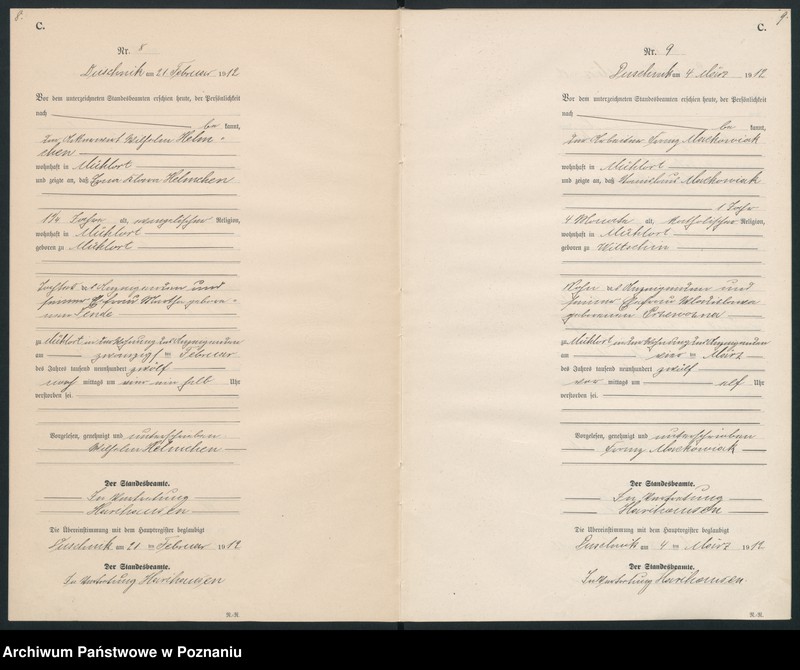 8.
C.
Nr. 8
Duschnik am 21 Februar 1912
Vor dem unterzeichneten Standesbeamten erschien heute, der Persönlichkeit
nach
be kannt,
der Wilhelm Helm-
chen
wohnhaft in Mühlort
und zeigte an, daß Erna Klara Helmchen
1 3/4 Jahre alt, evangelischer Religion,
wohnhaft in Mühlort
geboren zu Mühlort
Tochter des Anzeigenden und
seiner Ehefrau Martha gebore-
nen
zu Mühlort in der Wohnung des Anzeigenden
am zwanzigsten Februar
des Jahres tausend neunhundert zwölf
nach mittags um ein halb Uhr
verstorben sei.
Vorgelesen, genehmigt und unterschrieben
Wilhelm Helmchen
Der Standesbeamte.
In Vertretung
Die Übereinstimmung mit dem Hauptregister beglaubigt
Duschnik am 21 ten Februar 1912
Der Standesbeamte.
In Vertretung
R.-R.
9.
C.
Nr. 9
Duschnik am 4 März 1912
Vor dem unterzeichneten Standesbeamten erschien heute, der Persönlichkeit
nach
be kannt,
der Arbeiter Franz Mackowiak
wohnhaft in Mühlort
und zeigte an, daß Stanislaus Mackowiak
1 Jahr
4 Monate alt, katholischer Religion,
wohnhaft in Mühlort
geboren zu
Sohn des Anzeigenden und
seiner Ehefrau Wladislawa
geborenen
zu Mühlort in der Wohnung des Anzeigenden
am vier ten März
des Jahres tausend neunhundert zwölf
vor mittags um elf Uhr
verstorben sei.
Vorgelesen, genehmigt und unterschrieben
Franz Mackowiak
Der Standesbeamte.
In Vertretung
Die Übereinstimmung mit dem Hauptregister beglaubigt
Duschnik am 4 ten März 1912
Der Standesbeamte.
In Vertretung
R.-R.
Archiwum Państwowe w Poznaniu